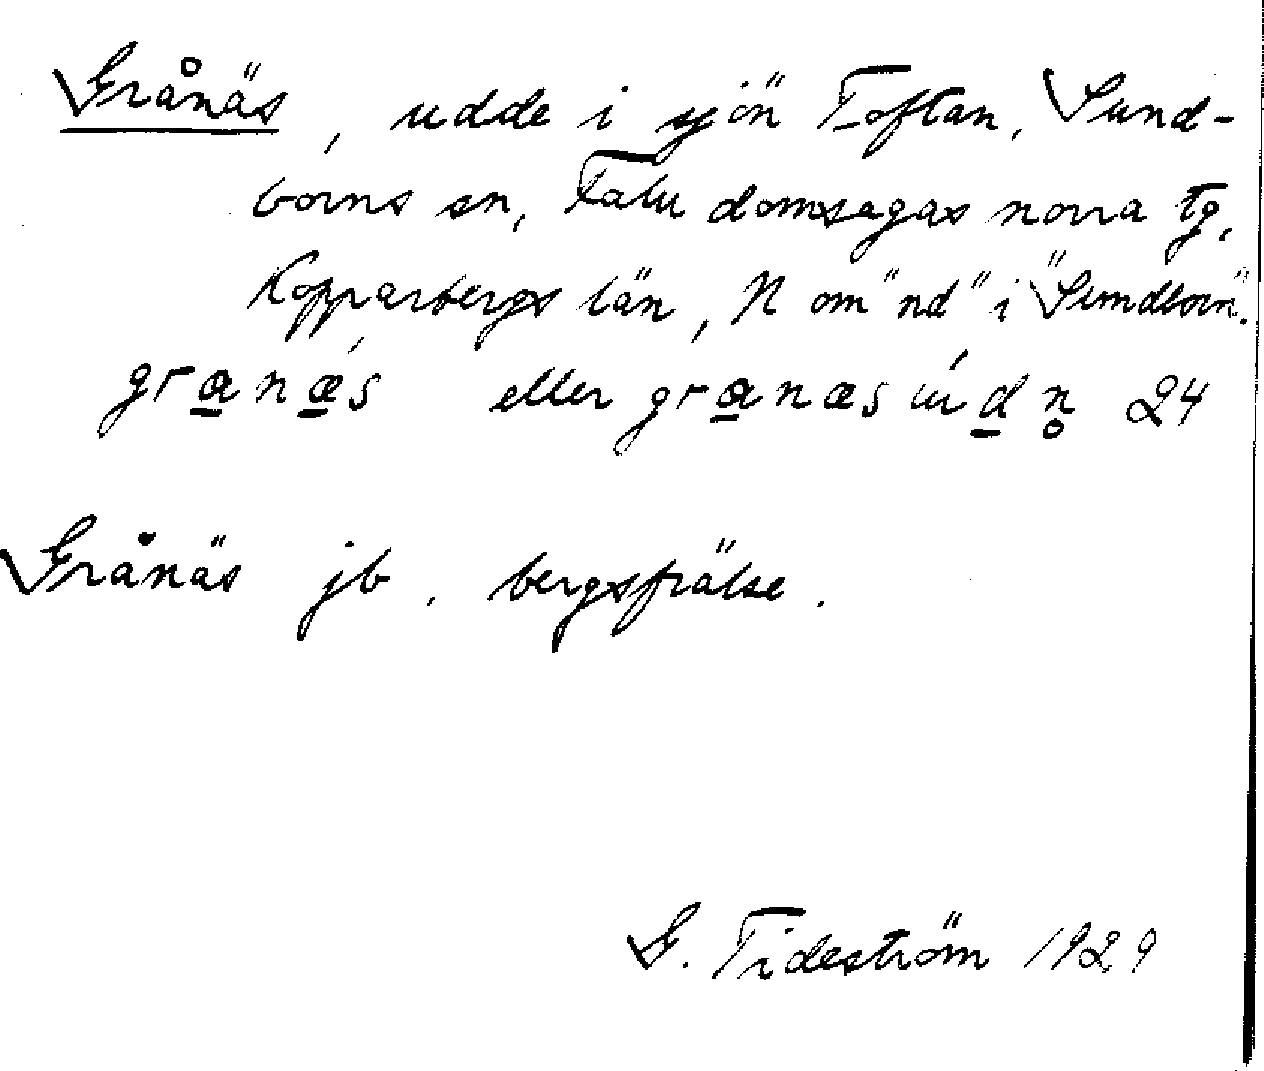 Grånäs, udde i sjön Toftan, Sund-
borns sn, Falu domsagas norra tg,
Kopparbergs län, N om "nd" i "Sundborn".
granǽs eller granæsúdn̥ 24
Grånäs jb. bergsfrälse.
G. Tideström 1929